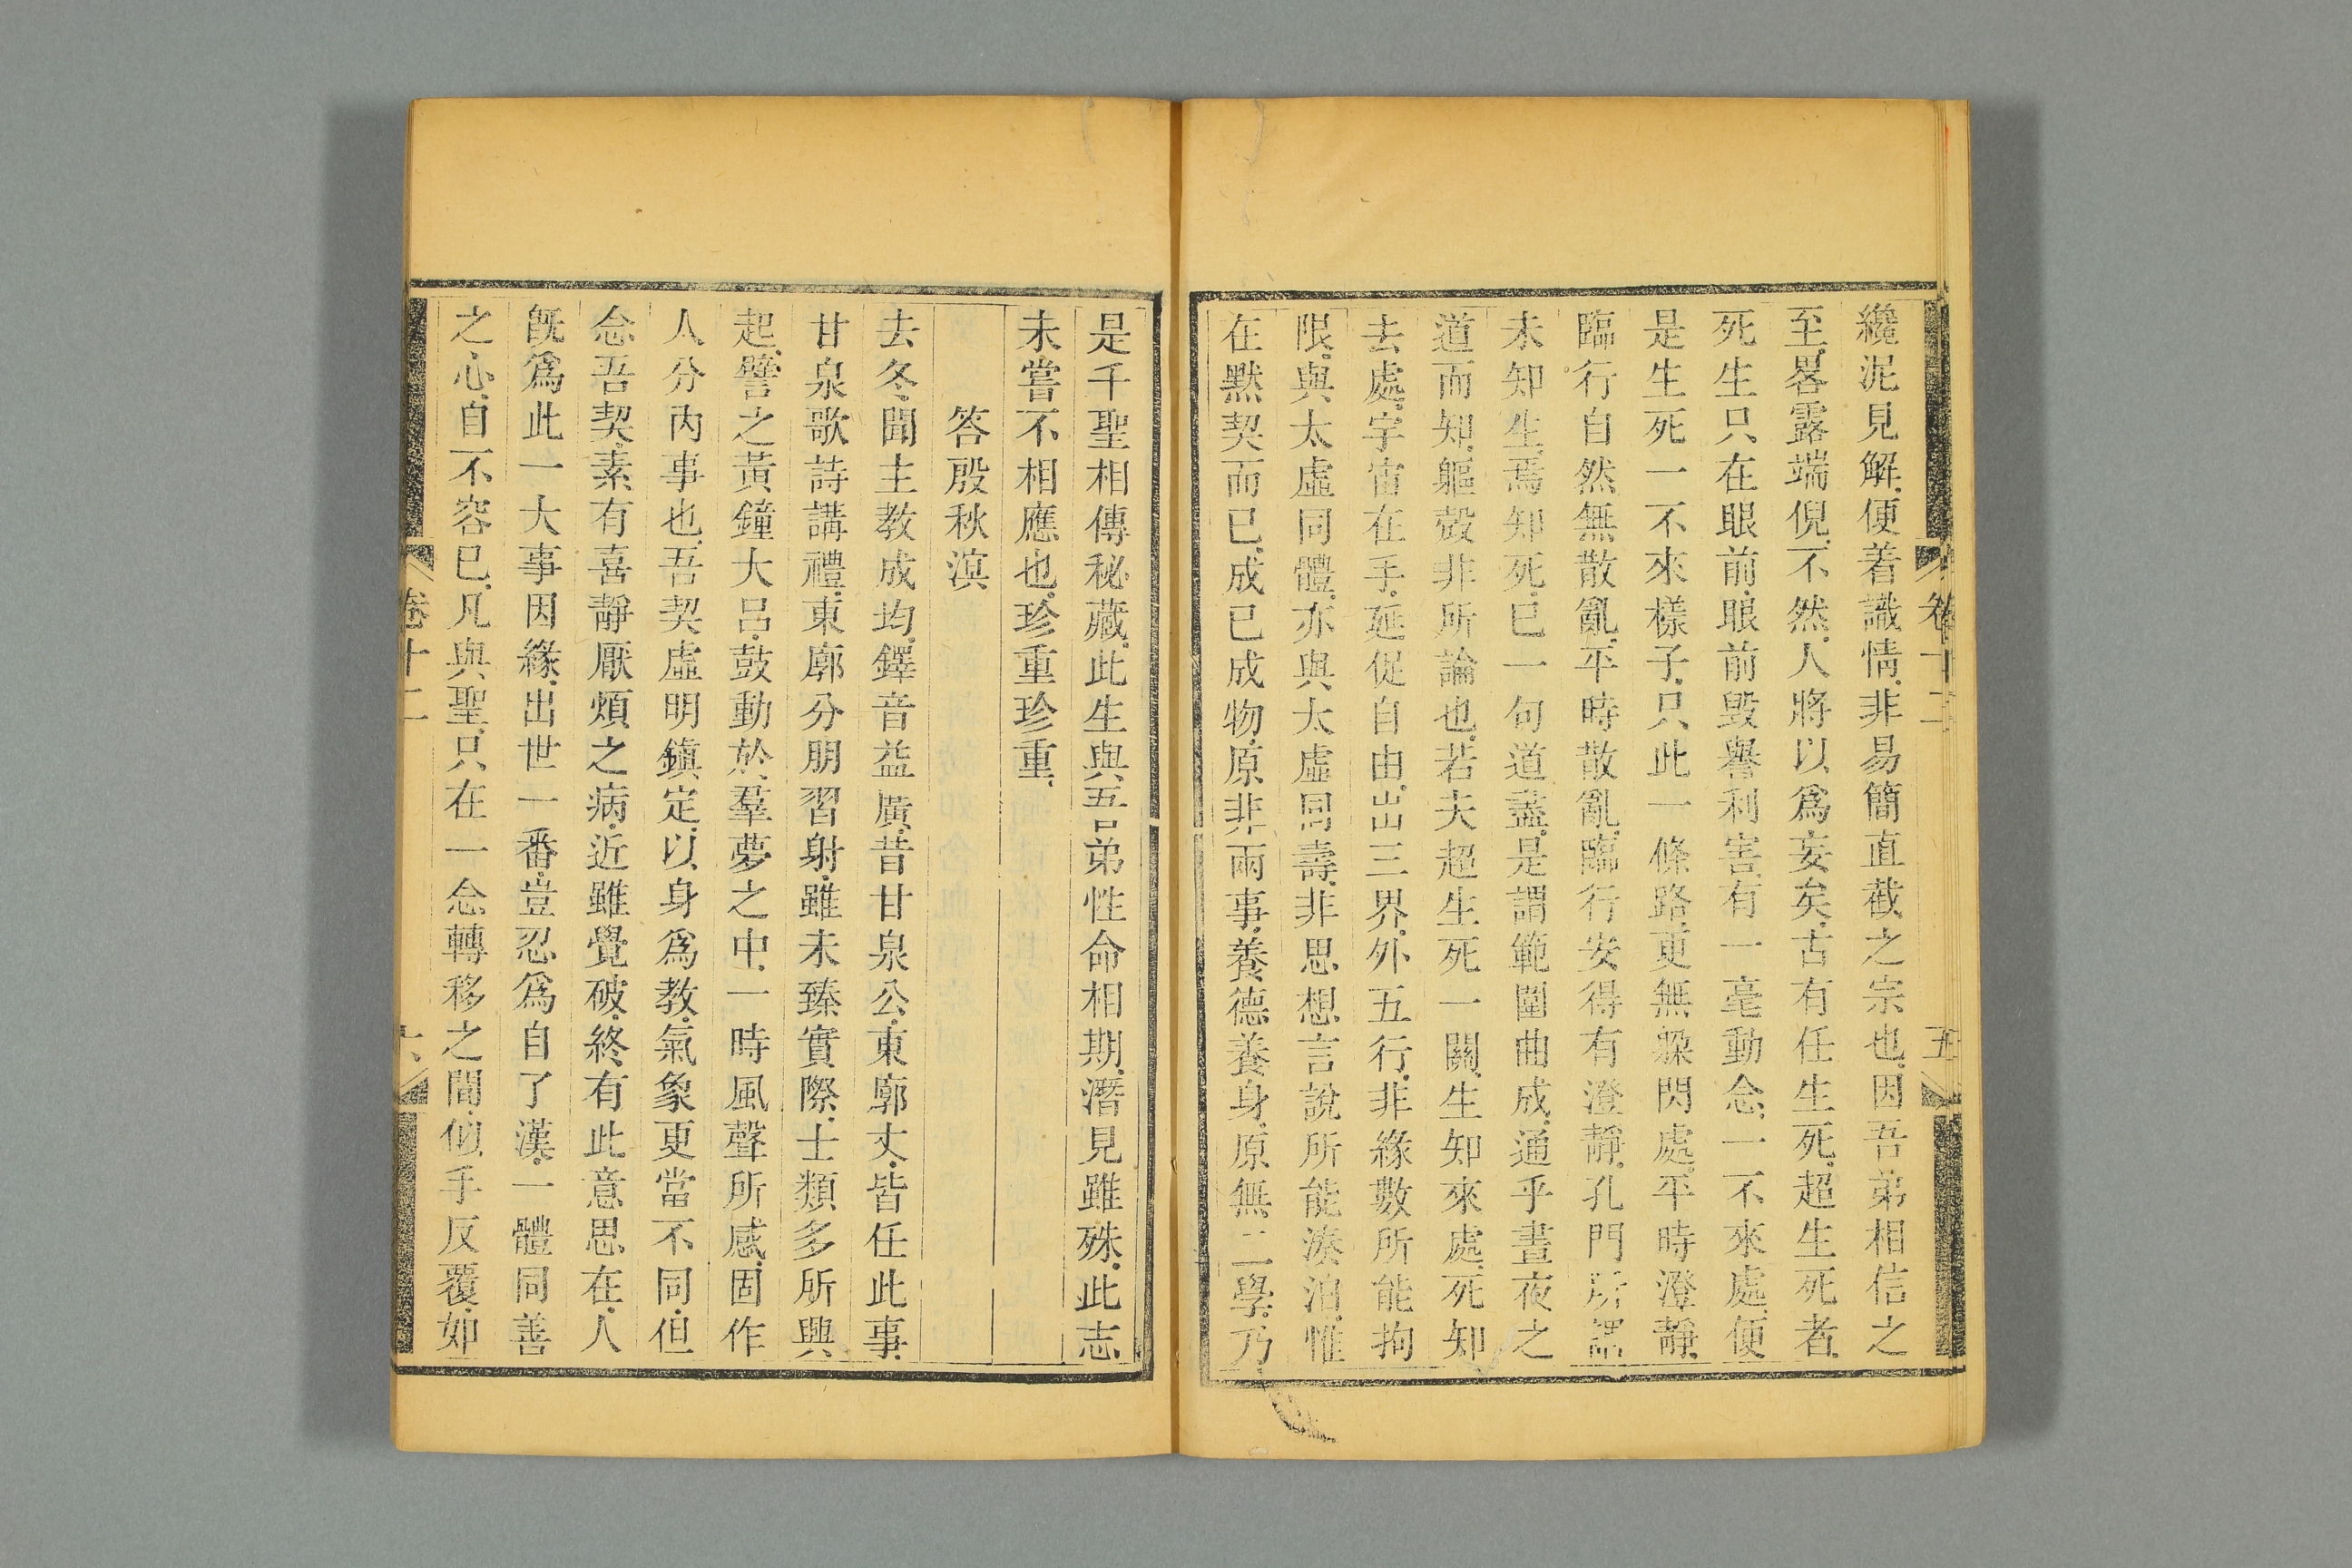 卷十二
五
纔泥見解便着識情非易簡直截之宗也因吾弟相信之
至畧露端倪不然人將以為妄矣古有任生死超生死者
死生只在眼前眼前毀譽利害有一毫動念一不來處便
是生死一不來樣子只此一條路更無躱閃處平時澄靜
臨行自然無散亂平時散亂臨行安得有澄靜孔門所謂
未知生焉知死已一句道盡是謂範圍曲成通乎晝夜之
道而知軀殼非所論也若夫超生死一關生知來處死知
去處宇宙在手延促自由出三界外五行非緣數所能拘
限與太虛同體亦與太虛同壽非思想言說所能湊泊惟
在默契而已成已成物原非兩事養德養身原無二學乃
是千聖相傳秘藏此生與吾弟性命相期潛見雖殊此志
未嘗不相應也珍重珍重
答殷秋溟
去冬聞主教成均鐸音益廣昔甘泉公東廓丈皆任此事
甘泉歌詩講禮東廓分朋習射雖未臻實際士類多所興
起譬之黃鐘大呂鼓動於羣夢之中一時風聲所感固作
人分內事也吾契虛明鎮定以身為教氣象更當不同但
念吾契素有喜靜厭煩之病近雖覺破終有此意思在人
旣爲此一大事因緣出世一番豈忍爲自了漢一體同善
之心自不容已凡與聖只在一念轉移之間似手反覆如
卷十二
六